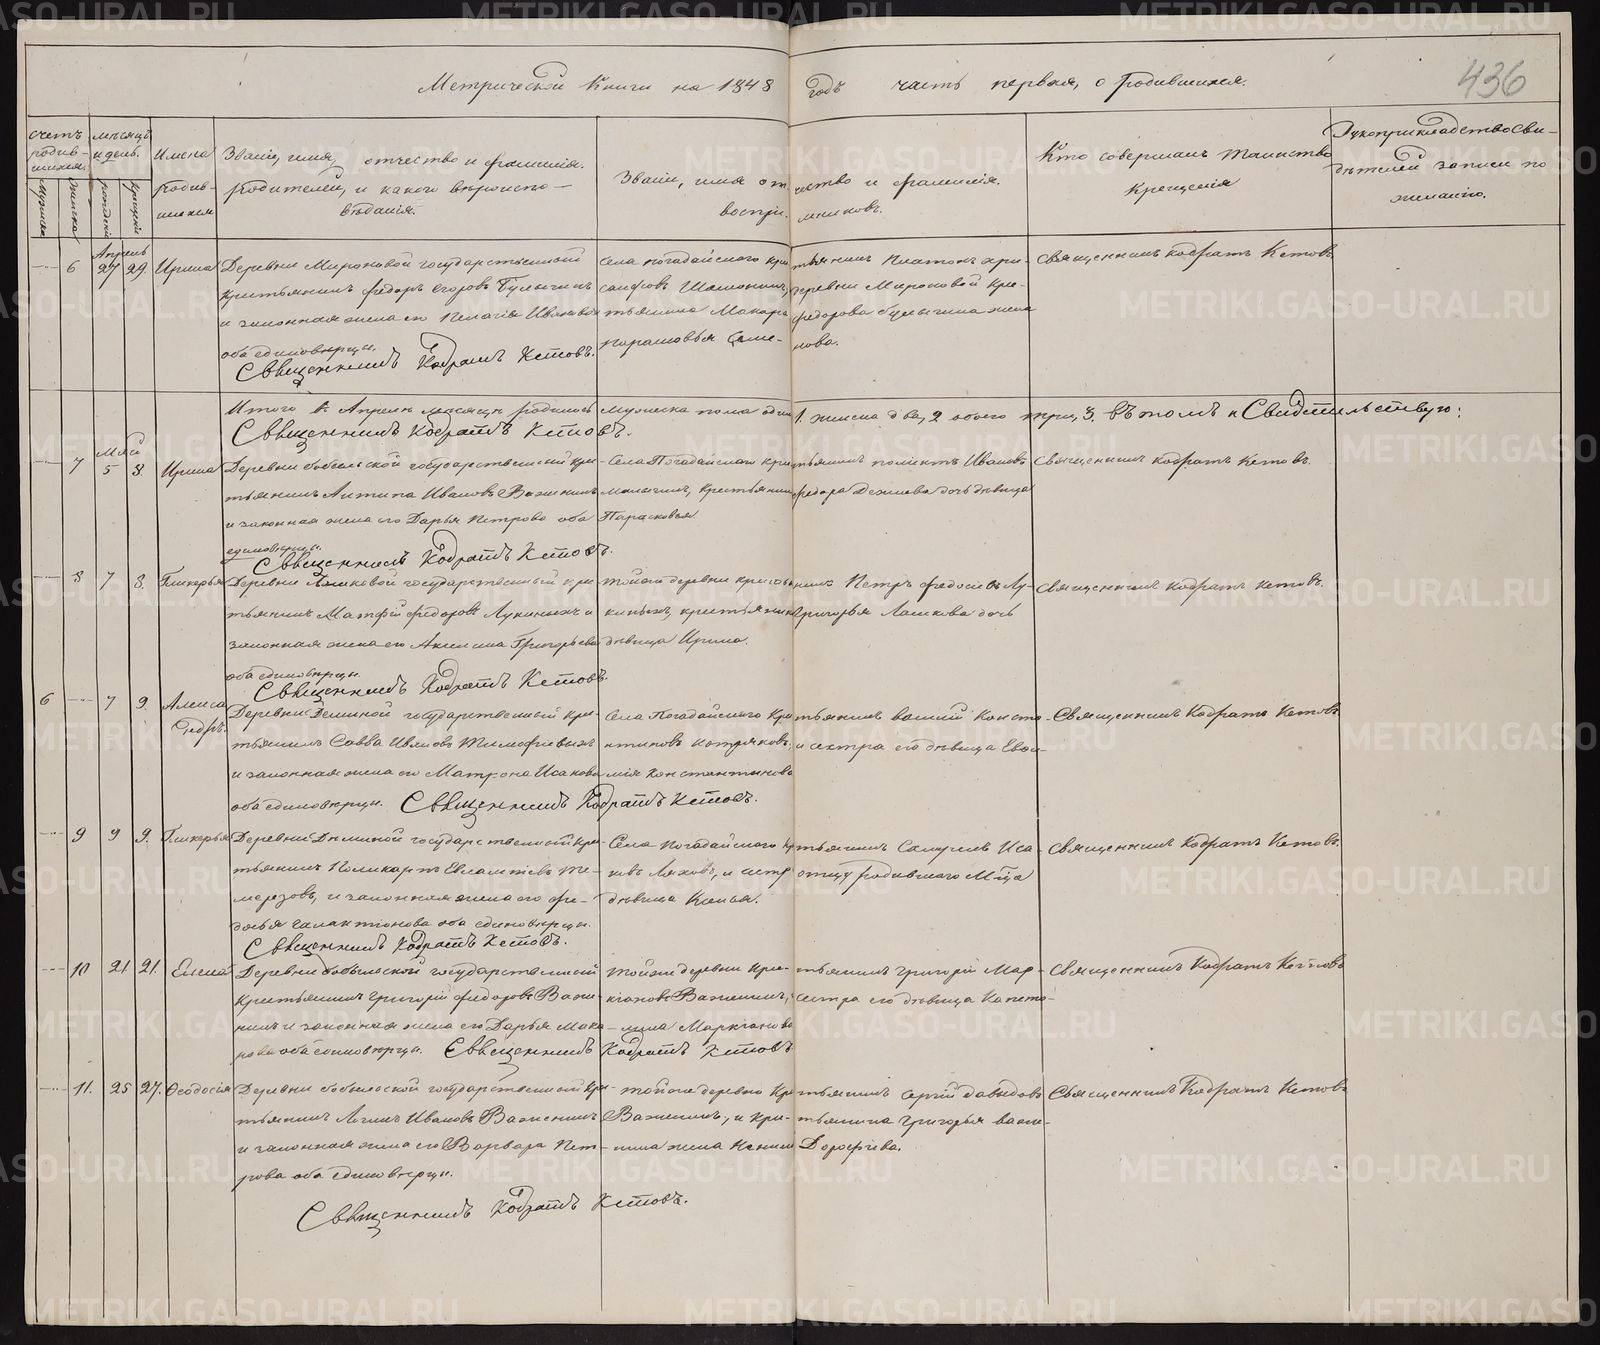 Метрической Книги на 1848 годъ часть первая, о родившихся.
436
счетъ родившихся.
мужеска
женска
мѣсяцъ и день.
рожденія
крещенія
Имена родившихся
Званіе, имя, отчество и фамилія родителей, и какого вѣроисповѣданія.
Званіе, имя отчество и фамилія воспріемниковъ.
Кто совершалъ таинство крещенія
Рукоприкладство свидѣтелей записи по желанію.
Апрель
6 27 29 Ирина
Деревни Мироновой государственной
крестьянинъ Федоръ Егоровъ Булыгинъ
и законная жена его Пелагія Иванова
оба единоверцы.
Священникъ Кодратъ Кетовъ.
Села Погадайского крестьянинъ Платонъ
деревни Мироновой
Макара Федорова Булыгина жена
Священникъ Кодратъ Кетовъ
Итого в Апрели месяцы родилось мужеска пола один 1. женска два, 2 обоего три, 3. Въ томъ и Свидѣтельствую:
Священникъ Кодратъ Кетовъ.
Май
7 5 8. Ирина
Деревни Бобыльской государственный крестьянинъ Антипа Ивановъ Важенинъ
и законная жена его Дарья Петрова оба
единоверцы.
Священникъ Кодратъ Кетовъ.
Села Погадайского крестьянинъ Ивановъ
Малыгинъ, крестьянина Федора дочь девица
Парасковья.
Священникъ Кодратъ Кетовъ.
8 7 8. Гликерья
Деревни государственный крестьянинъ Матфій Федоровъ Лукиныхъ и
законная жена его Акилина Григорьева
оба единоверцы.
Священникъ Кодратъ Кетовъ.
тойже деревни крестьянинъ Петръ Федосеевъ Лукиныхъ, крестьянина
Григорья дочь
девица Ирина.
Священникъ Кодратъ Кетовъ.
6 7 9. Алексадръ.
Деревни Деминой государственный крестьянинъ Савва Ивановъ Тимофеевыхъ
и законная жена его Матрона Исакова
оба единоверцы. Священникъ Кодратъ Кетовъ.
Села Погадайского крестьянинъ Василій Константиновъ
и сестра его девица
Константинова
Священникъ Кодратъ Кетовъ
9 9 9. Гликерья
Деревни Деминой государственный крестьянинъ Поликарпъ
и законная жена его Федосья Галактионова оба единоверцы.
Священникъ Кодратъ Кетовъ.
Села Погадайского крестьянинъ Самуилъ Исаковъ Ляховъ,
девица
Священникъ Кодратъ Кетовъ.
10 21 21. Елена
Деревни Бобыльской государственной
крестьянинъ Григорій Федоровъ Важенинъ и законная жена его Дарья Макарова оба единоверцы. Священникъ Кодратъ Кетовъ
тойже деревни крестьянинъ Григорій Маркіановъ Важенинъ, сестра его девица
Маркіанова
Священникъ Кодратъ Кетовъ
11. 25 27. Ѳеодосія
Деревни Бобыльской государственной крестьянинъ Логинъ Ивановъ Важенинъ
и законная жена его Варвара Петрова оба единоверцы.
Священникъ Кодратъ Кетовъ.
тойже деревни крестьянинъ Сергій Давыдовъ
Важенинъ, и крестьянина Григорья Важенина жена Ксенія Дорофеева.
Священникъ Кодратъ Кетовъ
METRIKI.GASO-URAL.RU